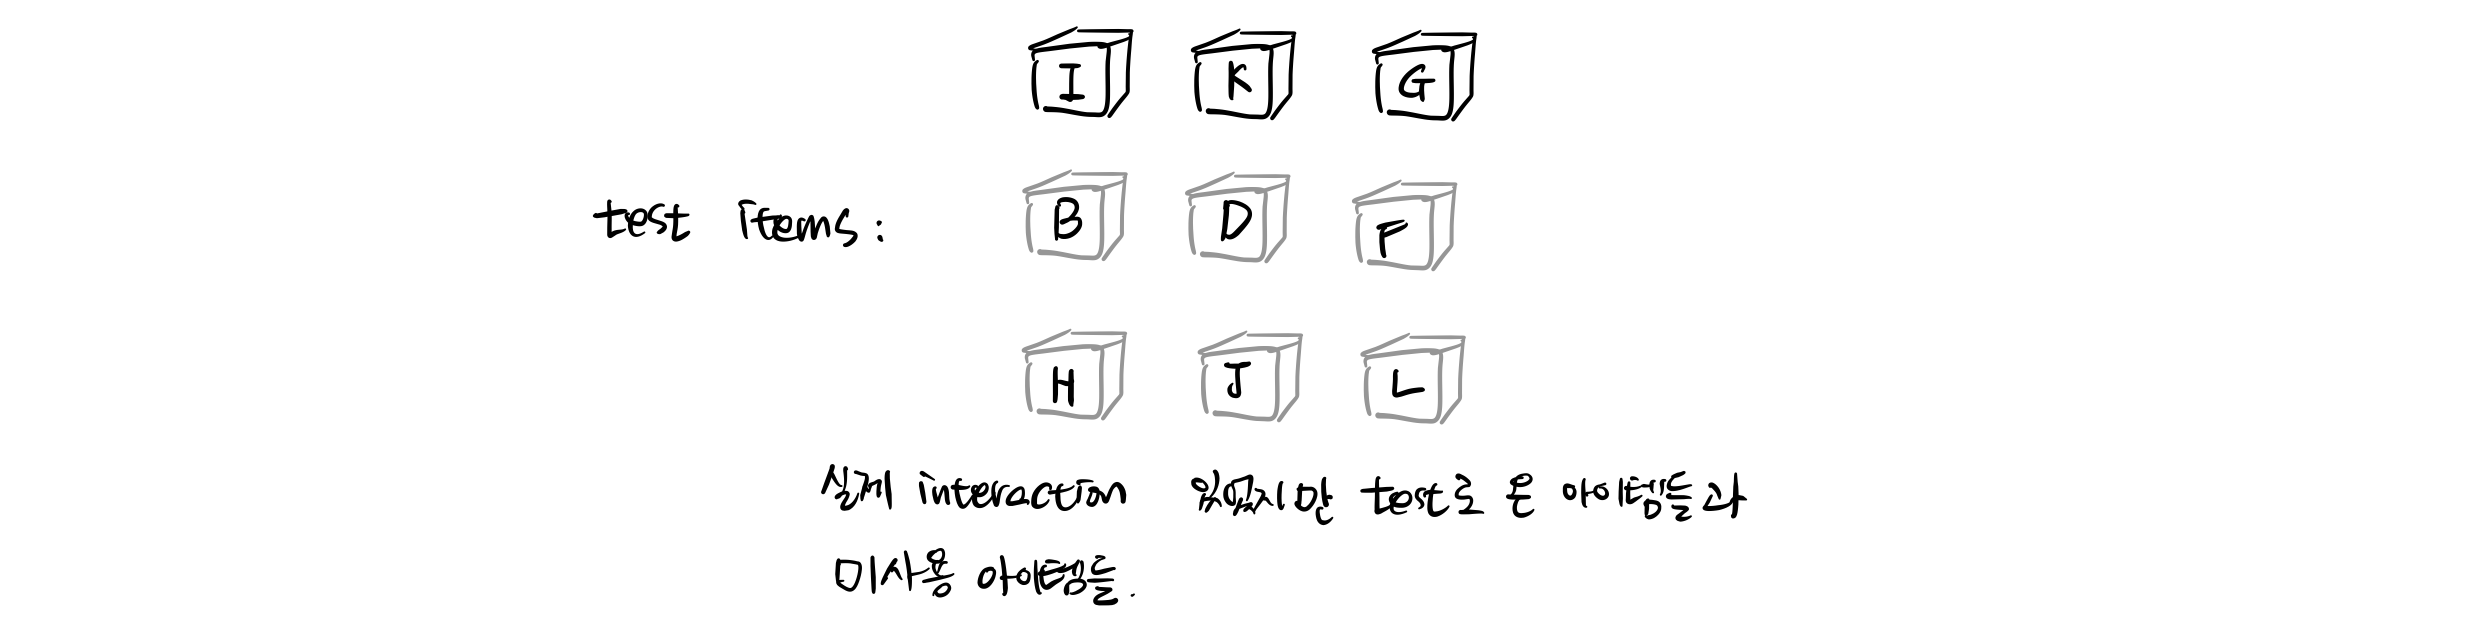 I K G
test items : B D F
H J L
실제 interaction 있었지만 test로 온 아이템들과
미사용 아이템들.